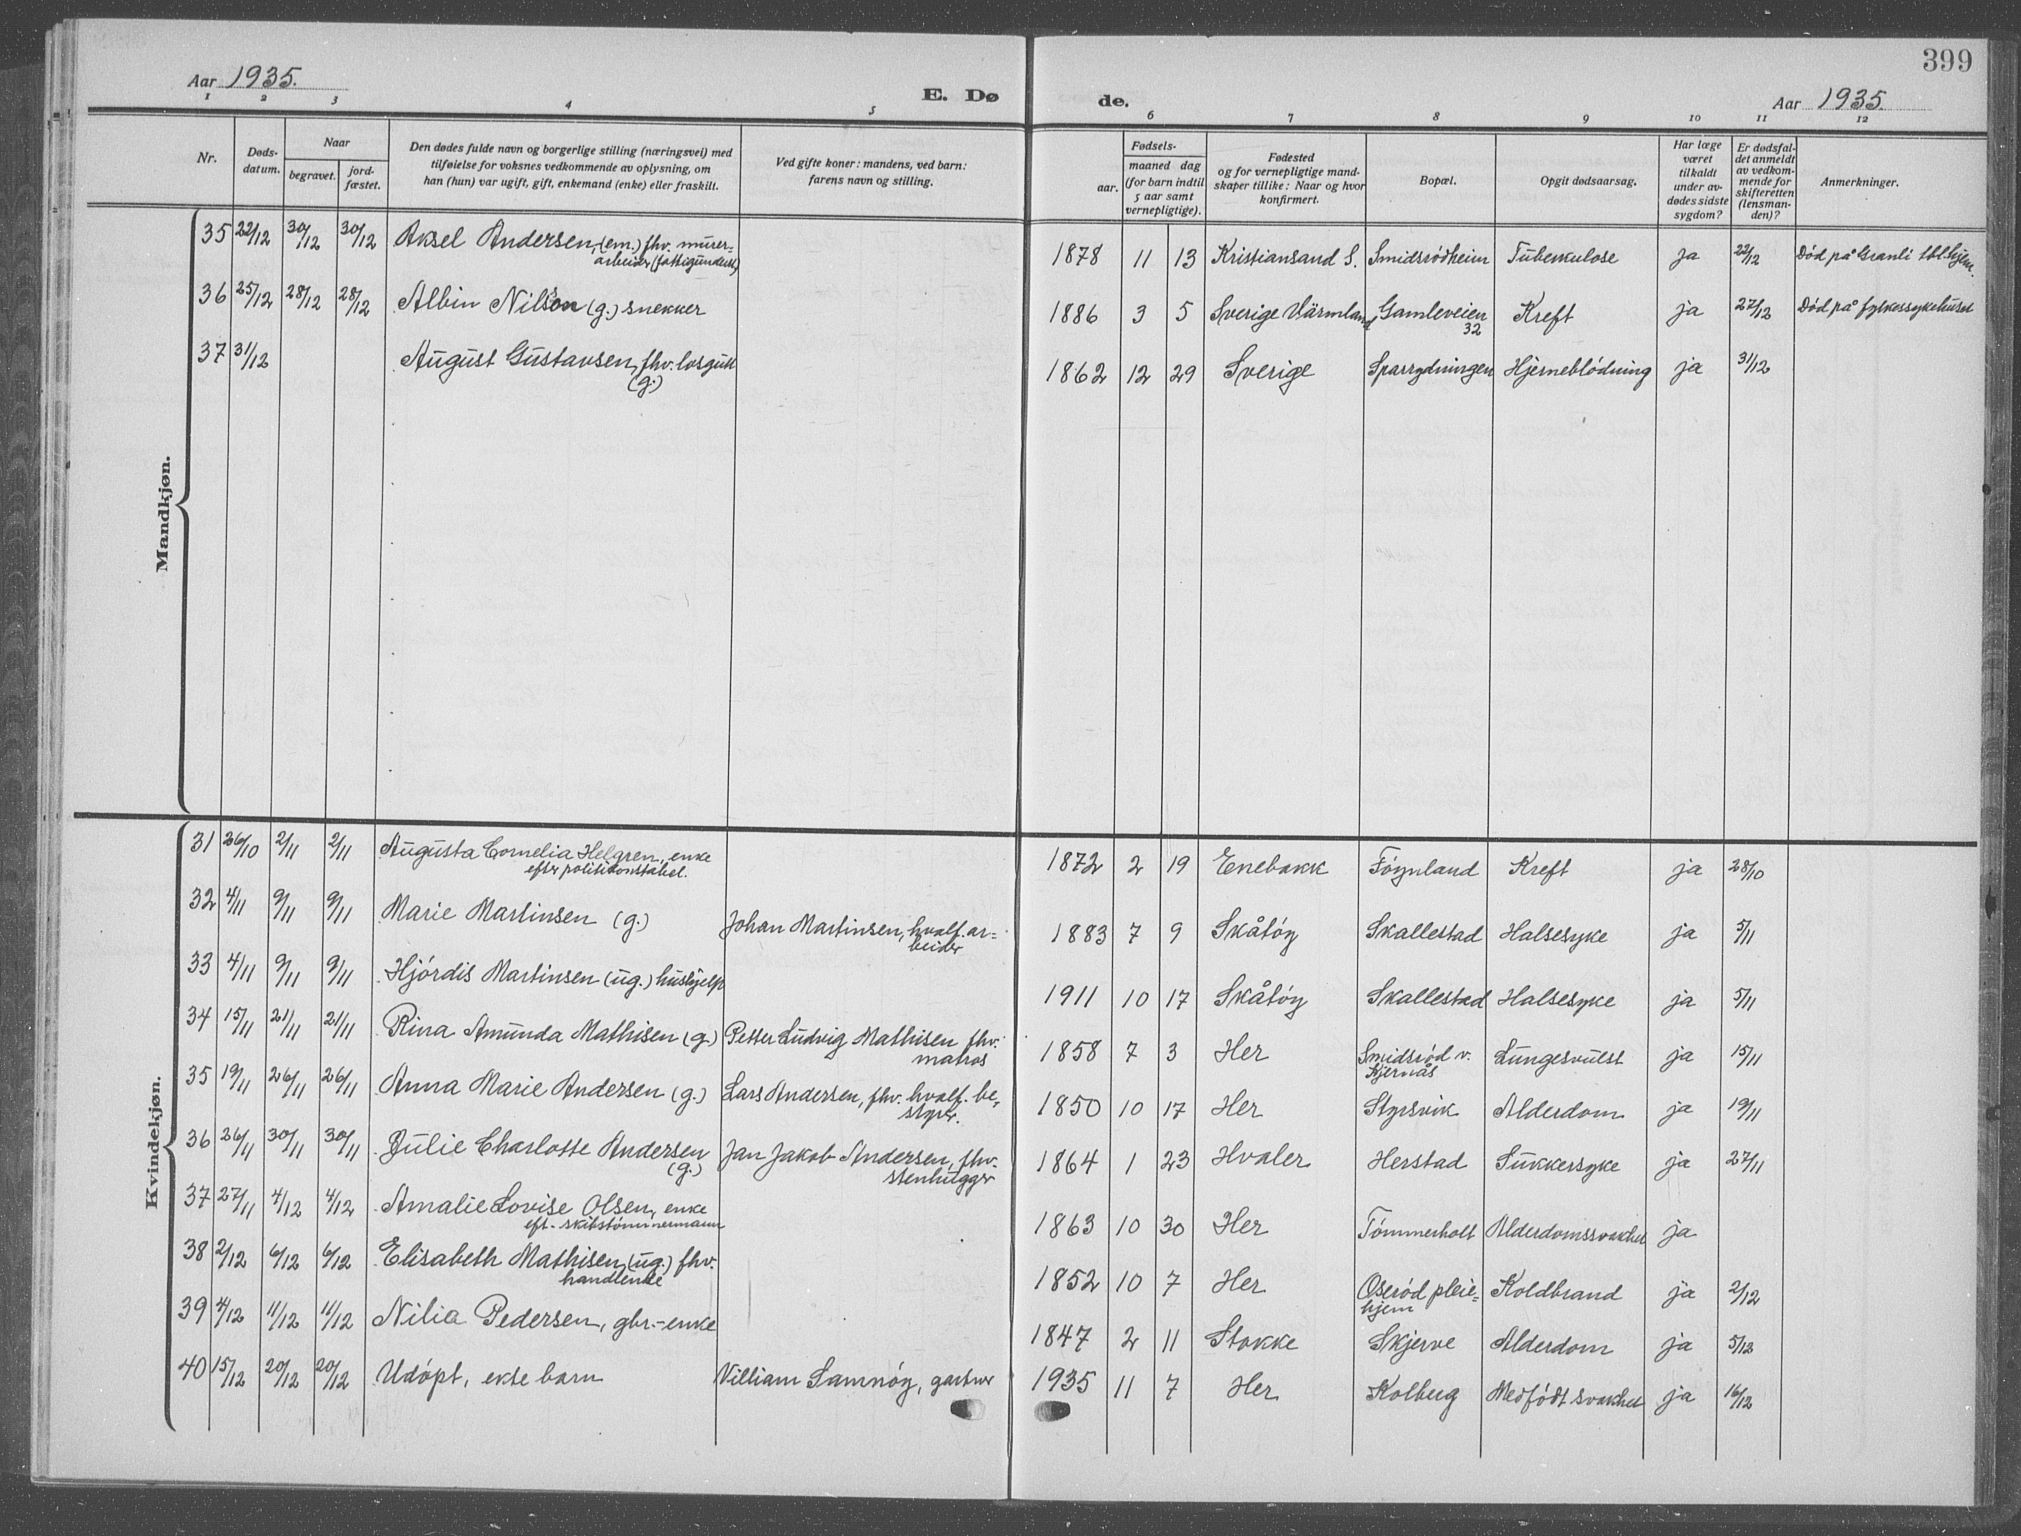 399
Aar 1935.
E. Dø
de.
Aar 1935.
1 2 3 4 5 6 7 8 9 10 11 12
Nr.
Døds-
datum.
Naar
begravet.
jord-
fæstet.
Den dødes fulde navn og borgerlige stilling (næringsvei) med
tilføielse for voksnes vedkommende av oplysning, om
han (hun) var ugift, gift, enkemand (enke) eller fraskilt.
Ved gifte koner: mandens, ved barn:
farens navn og stilling.
Fødsels-
aar.
maaned dag
(for barn indtil
5 aar samt
vernepligtige).
Fødested
og for vernepligtige mand-
skaper tillike: Naar og hvor
konfirmert.
Bopæl.
Opgit dødsaarsag.
Har læge
været
tilkaldt
under av-
dødes sidste
sygdom?
Er dødsfal-
det anmeldt
av vedkom-
mende for
skifteretten
(lensman-
den)?
Anmerkninger.
Mandkjøn.
35 22/12 30/12 30/12 Aksel Andersen, (em.) fhv. murer- 1878 11 13 Kristiansand S. Smidsrödheim Tuberkulose ja 22/12 Död på Granli tbl.hjem.
arbeider (fattigunderst.)
36 25/12 28/12 28/12 Albin Nilson (g.) snekker 1886 3 5 Sverige Värmland Gamleveien Kreft ja 27/12 Död på fylkessykehuset
32
37 31/12 August Gustavsen, fhv. losgutt 1862 12 29 Sverige Sparrydningen Hjerneblödning ja 31/12
(g.)
Kvindekjøn.
31 26/10 2/11 2/11 Augusta Cornelia Helgren, enke 1872 2 19 Enebakk Föynland Kreft ja 28/10
efter politikonstabel.
32 4/11 9/11 9/11 Marie Martinsen (g.) Johan Martinsen, hvalf. ar- 1883 7 9 Skåtöy Skallestad Halsesyke ja 5/11
beider
33 4/11 9/11 9/11 Hjördis Martinsen (ug.) hushjelp 1911 10 17 Skåtöy Skallestad Halsesyke ja 5/11
34 15/11 21/11 21/11 Rina Amunda Mathisen (g.) Petter Ludvig Mathisen fhv. 1858 7 3 Her Smidsröd v. Lungesvulst ja 15/11
matros Kjernås
35 19/11 26/11 26/11 Anna Marie Andersen (g.) Lars Andersen, fhv. hvalf. be- 1850 10 17 Her Styrsvik Alderdom ja 19/11
styrer.
36 26/11 30/11 30/11 Julie Charlotte Andersen Jan Jakob Andersen, fhv. 1864 1 23 Hvaler Herstad Sukkersyke ja 27/11
(g.) stenhugger
37 27/11 4/12 4/12 Amalie Lovise Olsen, enke 1863 10 30 Her Tömmerholt Alderdomssvakhet ja
eft. skibstömmermann
38 2/12 6/12 6/12 Elisabeth Mathisen, (ug.) fhv. 1852 10 7 Her Oseröd pleie- Koldbrand ja 2/12
handlende hjem
39 4/12 11/12 11/12 Nilia Pedersen, gbr.-enke 1847 2 11 Stokke Skjerve Alderdom ja 5/12
40 15/12 20/12 20/12 Udöpt, ekte barn Villiam Samnöy, gartner 1935 11 7 Her Kolberg Medfödt svakhet ja 16/12